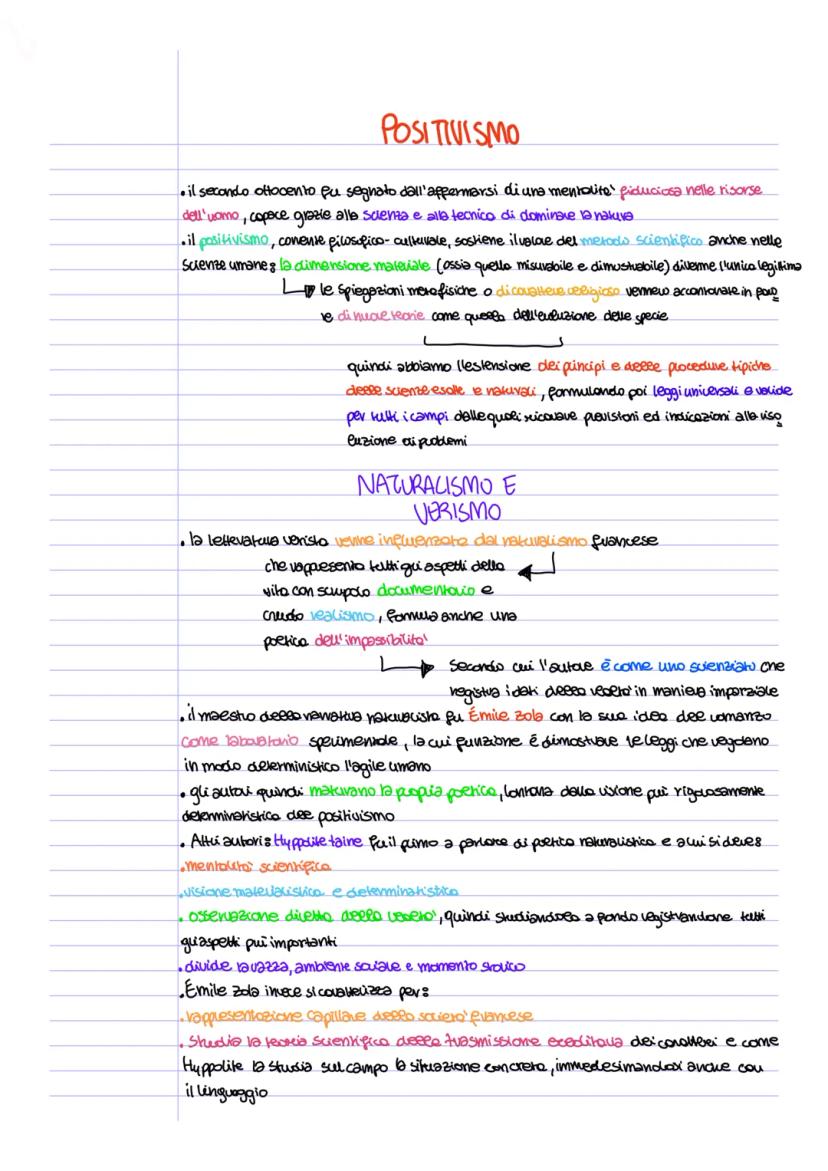 POSITIVISMO
• il secondo ottocento fu segnato dall'affermarsi di una mentalita' fiduciosa nelle risorse
dell'uomo, capace grazie alla scienza e alla tecnica di dominare la natura
• il positivismo, corrente filosofico-culturale, sostiene il valore del metodo scientifico anche nelle
scienze umane: la dimensione materiale (ossia quella misurabile e dimostrabile) diviene l'unica legittima
↳ le spiegazioni metafisiche o di carattere religioso vennero accantonate in favo
re di nuove teorie come quella dell'evoluzione delle specie
quindi abbiamo l'estensione dei principi e delle procedure tipiche
delle scienze esatte e naturali, formulando poi leggi universali e valide
per tutti i campi dalle quali ricavare previsioni ed indicazioni alla riso
luzione ai problemi
NATURALISMO E
VERISMO
• la letteratura verista venne influenzata dal naturalismo francese
che rappresenta tutti gli aspetti della
vita con scrupolo documentario e
crudo realismo, formula anche una
poetica dell'impassibilita'
Secondo cui l'autore é come uno scienziato che
registra i dati della realta' in maniera imparziale
• il maestro della narrativa naturalista fu Émile Zola con la sua idea del romanzo
come laboratorio sperimentale, la cui funzione é dimostrare le leggi che regolano
in modo deterministico l'agile umano
• gli autori quindi maturano la propria poetica, lontana dalla visione piú rigorosamente
deterministica del positivismo
• Altri autori: Hyppolite taine fu il primo a parlare di poetica naturalistica e a lui si deve:
• mentalita' scientifica
• visione materialistica e deterministica
• osservazione diretta della realta', quindi studiandola a fondo registrandone tutti
gli aspetti piú importanti
• divide la razza, ambiente sociale e momento storico
• Émile Zola invece si caratterizza per:
• rappresentazione capillare della societa' francese
• studia la teoria scientifica della trasmissione ereditaria dei caratteri e come
Hyppolite la studia sul campo la situazione concreta, immedesimandosi anche con
il linguaggio